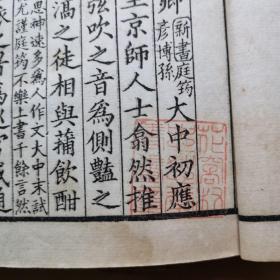 卿
新書庭筠
彥博孫
大中初應
至京師人士翕然推
弦吹之音爲側豔之
滈之徒相與蒱飲酣
思神速多爲人作文大中末試
尤謹庭筠不樂上書千餘言然